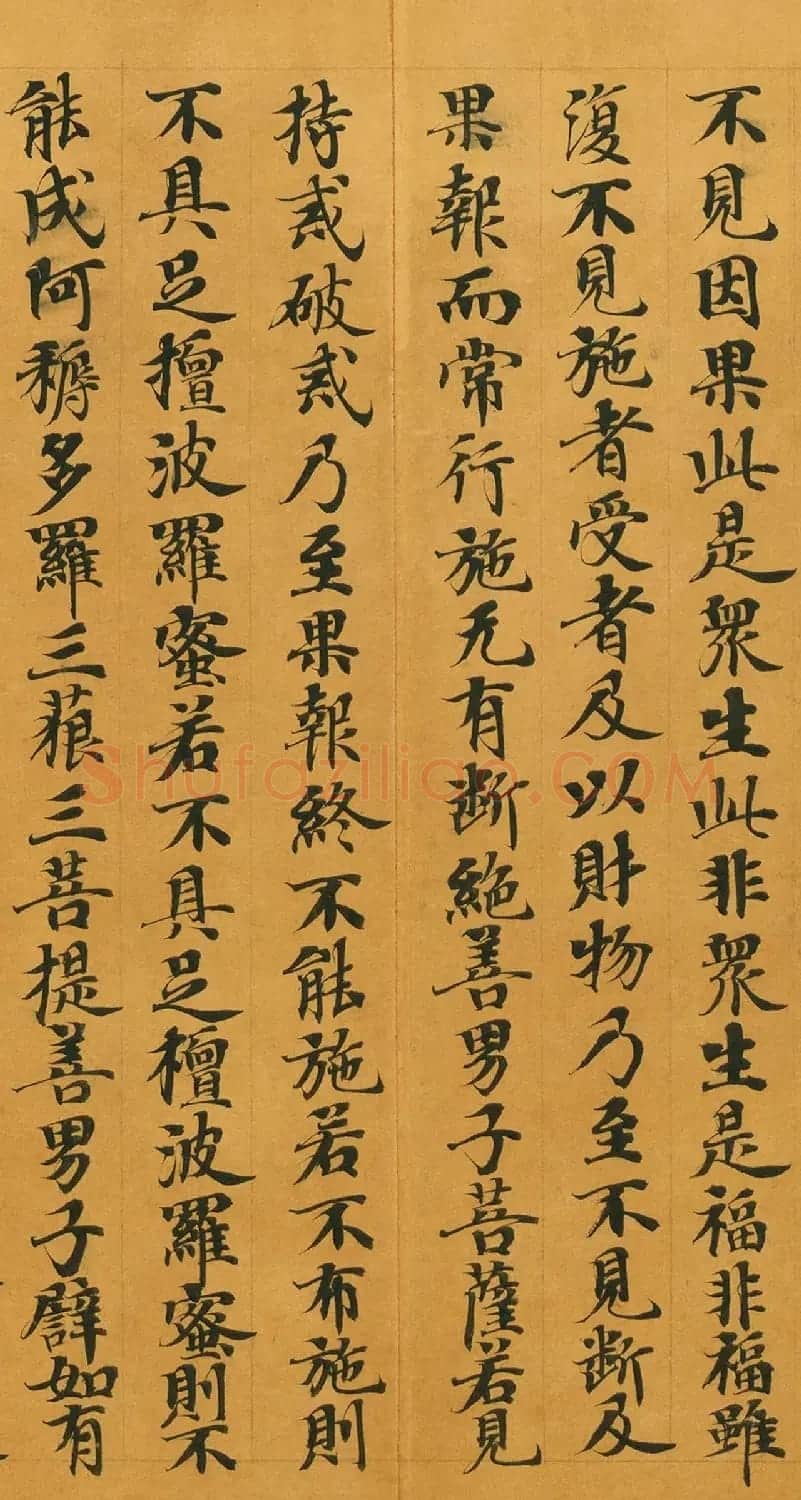 不見因果此是眾生此非眾生是福非福雖
復不見施者受者及以財物乃至不見断及
果報而常行施无有断絶善男子菩薩若見
持戒破戒乃至果報終不能施若不布施則
不具足檀波羅蜜若不具足檀波羅蜜則不
能成阿耨多羅三藐三菩提善男子譬如有
Shufaziliao.COM